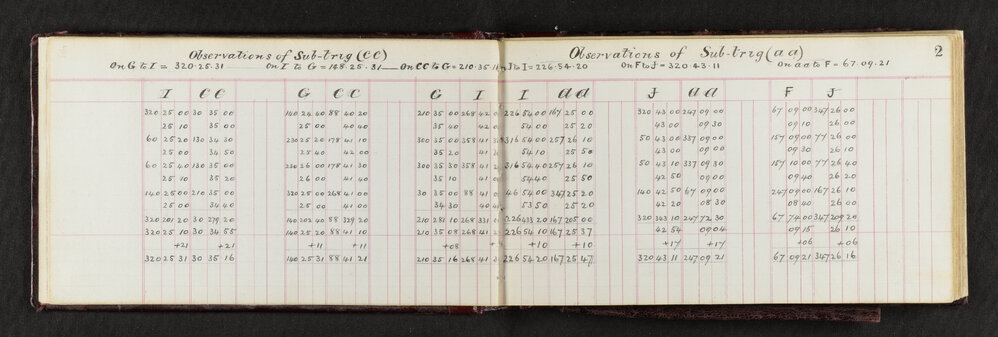 Observations of Sub-trig (CC)
On G to I = 320·25·31 On I to G = 148·25·31 On CC to G = 210·35·1
I CC G CC G I
320 25 00 30 35 00 140 24 40 88 40 20 210 35 00 268 42
25 10 35 00 25 00 40 40 35 40 42
60 25 20 130 34 30 230 25 20 178 41 10 300 35 00 358 41
25 00 34 50 25 40 42 00 35 20 41
60 25 40 130 35 00 230 26 00 178 41 30 300 35 30 358 41
25 10 35 20 26 00 41 40 35 10 41
140 25 00 210 35 00 320 25 00 268 41 00 30 35 00 88 41
25 00 34 40 25 00 41 00 34 30 40
320 201 20 30 279 20 140 202 40 88 329 20 210 281 10 268 331
320 25 10 30 34 55 140 25 20 88 41 10 210 35 08 268 41
+21 +21 +11 +11 +08
320 25 31 30 35 16 140 25 31 88 41 21 210 35 16 268 41
Observations of Sub-trig (aa) 2
J to I = 226·54·20 On F to J = 320·43·11 On aa to F = 67·09·21
I aa J aa F J
226 54 00 167 25 00 320 43 00 247 09 00 67 09 00 347 26 00
54 00 25 20 43 00 09 30 09 10 26 00
316 54 00 257 26 10 50 43 00 337 09 00 157 09 00 77 26 00
54 10 25 50 43 00 09 00 09 30 26 10
316 54 40 257 26 10 50 43 10 337 09 30 157 10 00 77 26 40
54 40 25 50 42 50 09 00 09 40 26 20
46 54 00 347 25 20 140 42 50 67 09 00 247 09 00 167 26 10
53 50 25 20 42 20 08 30 08 40 26 00
226 433 20 167 205 00 320 343 10 247 72 30 67 74 00 347 209 20
226 54 10 167 25 37 42 54 09 04 09 15 26 10
+10 +10 +17 +17 +06 +06
226 54 20 167 25 47 320 43 11 247 09 21 67 09 21 347 26 16